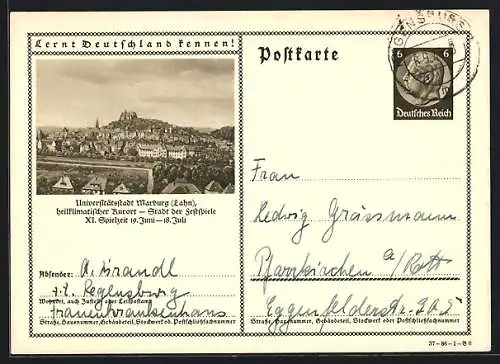 Lernt Deutschland kennen!
Universitätsstadt Marburg (Lahn),
heilklimatischer Kurort – Stadt der Festspiele
XI. Spielzeit 19. Juni–18. Juli
Absender: A. Brandl
z. Z. Regensburg
Wohnort, auch Zustell- oder Leitpostamt
Frauenkrankenhaus
Straße, Hausnummer, Gebäudeteil, Stockwerk od. Postschließfachnummer
Postkarte
6 6
Deutsches Reich
Frau
Hedwig Grässmann
Pfarrkirchen a/Rott
Eggenfeldenerstr.
Straße, Hausnummer, Gebäudeteil, Stockwerk oder Postschließfachnummer
37-86-1-B6